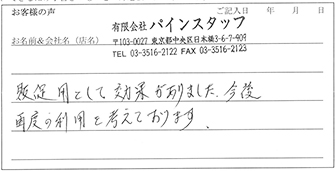 お客様の声 ご記入日 年 月 日
お名前&会社名（店名） 有限会社 パインスタッフ
〒103-0027 東京都中央区日本橋3-6-7-409
TEL 03-3516-2122 FAX 03-3516-2123
販促用として効果がありました。今後
再度の利用を考えております。